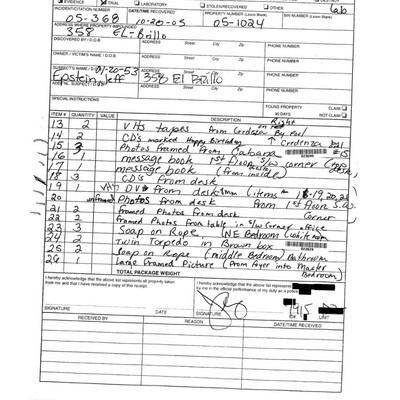 EVIDENCE TRIAL LABORATORY STOLEN/RECOVERED OTHER Lab
INCIDENT/CITATION NUMBER DATE/TIME RECOVERED PROPERTY NUMBER BIN NUMBER (Leave Blank)
05-368 10-20-05 05-1024
ADDRESS WHERE PROPERTY IMPOUNDED
358 EL-Brillo
DISCOVERED BY / D.O.B. ADDRESS Street City Zip PHONE NUMBER
OWNER / VICTIM'S NAME / D.O.B. ADDRESS Street City Zip PHONE NUMBER
SUSPECT'S NAME / D.O.B. 01-20-53 ADDRESS Street City Zip PHONE NUMBER
Epstein, Jeff 358 El Brillo
SPECIAL INSTRUCTIONS FOUND PROPERTY
90 DAYS CLAIM
ITEM # QUANTITY VALUE DESCRIPTION Right
13 2 VHS tapes from Credenza By Pool
14 2 CD's marked Happy Birthday Credenza
15 3 Photos framed From Cabana #15
16 1 message book 1st Floor S/W corner
17 1 message book (from inside)
18 3 CD's from desk
19 1 DVD from desk (items 18-19, 20, 21
20 Photos from desk from 1st floor S.W.
21 2 framed Photos from desk corner
22 2 framed Photos from table in S/W corner office
23 3 Soap on Rope (NE Bedroom
24 2 Twin Torpedo in Brown box
25 2 soap on Rope (middle Bedroom) Bathroom
26 1 Large framed Picture (from foyer into Master Bedroom)
TOTAL PACKAGE WEIGHT
I hereby acknowledge that the above list represents all property taken from me and that I have received a copy of this receipt.
I hereby acknowledge that the above list represents
by me in the official performance of my duty as a police
SIGNATURE SIGNATURE UNIT
RECEIVED BY REASON DATE/TIME RECEIVED